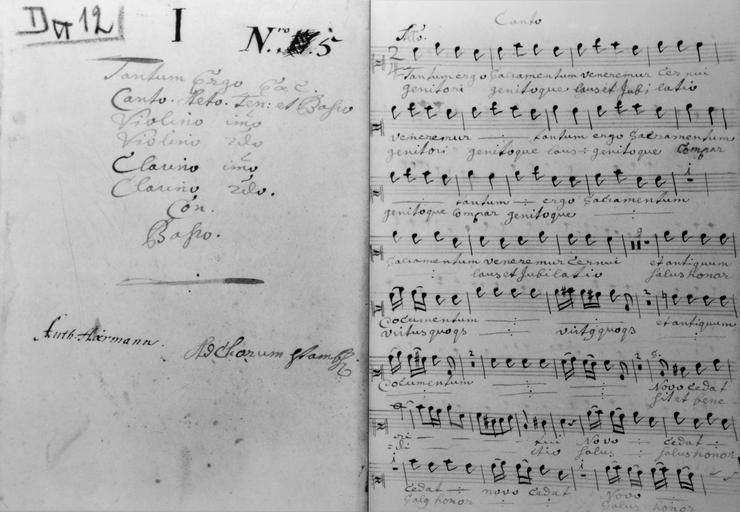 D 12
I
N.ro 5
Tantum Ergo Ex C.
Canto. Alto. Ten: et Basso
Violino imo
Violino 2do
Clarino imo
Clarino 2do.
Con.
Basso.
Auth. Hermann.
Ad Chorum Stams
Canto
Alto.
Tantum ergo Sacramentum veneremur Cernui
genitori genitoque laus et Jubilatio
veneremur tantum ergo Sacramentum
genitori genitoque laus: genitoque Compar
tantum ergo Sacramentum
genitoque Compar genitoque
Sacramentum veneremur Cernui et antiquum
laus et Jubilatio Salus honor
Documentum et antiquum
virtus quoqs virtq quoqs
Documentum Novo Cedat
sit et bene
ri tui Novo Cedat
di ctio Salus Salus honor
Cedat novo Cedat Novo
Salq honor Salus honor